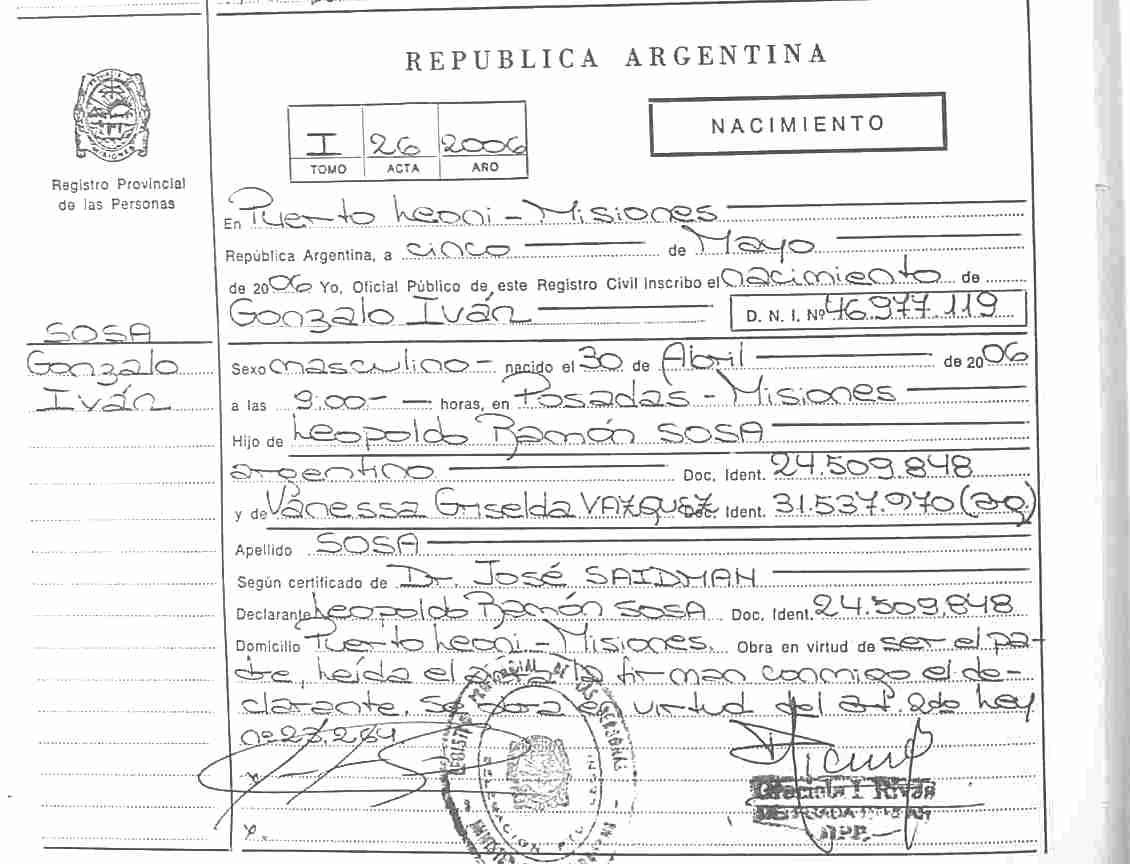 REPUBLICA ARGENTINA
I 26 2006
TOMO ACTA AÑO
NACIMIENTO
Registro Provincial
de las Personas
En Puerto Leoni - Misiones
República Argentina, a cinco de Mayo
de 2006 Yo, Oficial Público de este Registro Civil Inscribo el nacimiento de
Gonzalo Iván D. N. I. Nº 46.977.119
SOSA
Gonzalo
Iván
Sexo masculino - nacido el 30 de Abril de 2006
a las 9:00.- horas, en Posadas - Misiones
Hijo de Leopoldo Ramón SOSA
argentino Doc. Ident. 24.509.848
y de Vanessa Griselda VAZQUEZ Doc. Ident. 31.537.970 (arg)
Apellido SOSA
Según certificado de Dr. José SAIDMAN
Declarante Leopoldo Ramón SOSA Doc. Ident. 24.509.848
Domicilio Puerto Leoni - Misiones. Obra en virtud de ser el pa-
dre, Leída el acta la firman conmigo el de-
clarante. Se en virtud del art. 2do Ley
nº 23.264
Graciela I. Rivas